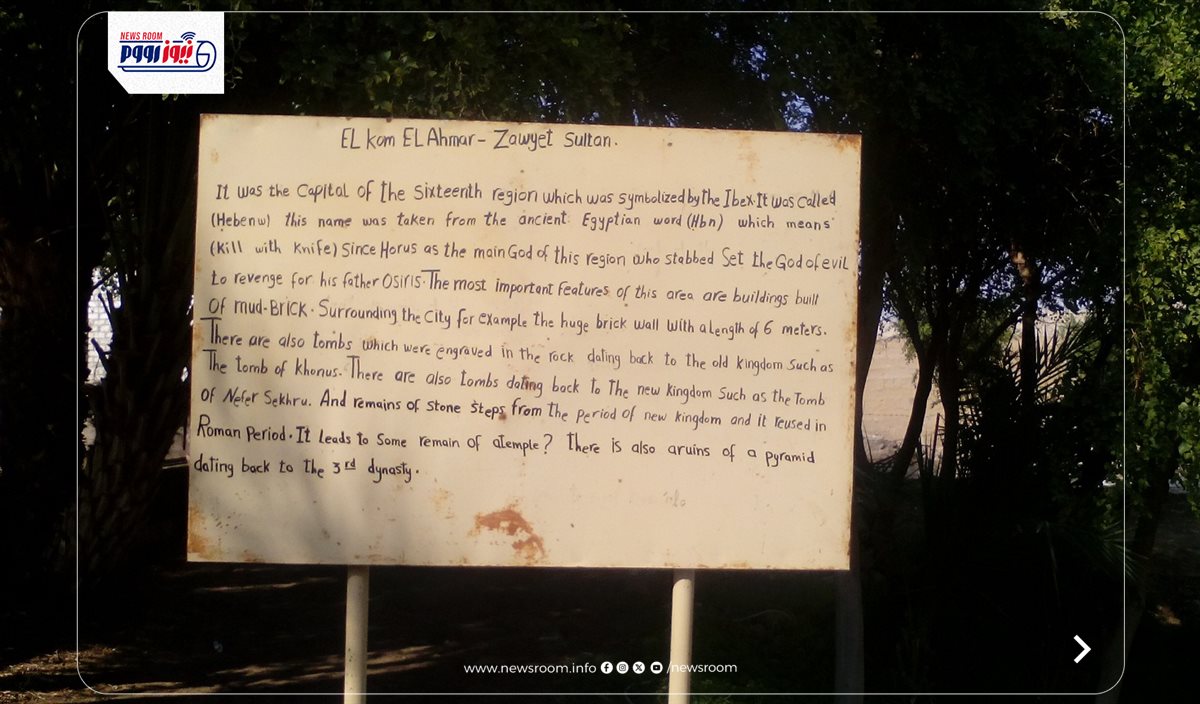 NEWS ROOM
نيوز رووم
EL Kom EL Ahmar - Zawyet Sultan.
It was the Capital of the Sixteenth region which was symbolized by the Ibex. It was called
(Hebenw) this name was taken from the ancient Egyptian word (Hbn) which means
(Kill with Knife) Since Horus as the main God of this region who stabbed Set the God of evil
to revenge for his father Osiris. The most important Features of this area are buildings built
Of mud-Brick. Surrounding the City for example the huge brick wall With a Length of 6 meters.
There are also tombs which were engraved in the rock dating back to the old Kingdom Such as
The tomb of Khonus. There are also tombs dating back to The new Kingdom Such as the Tomb
of Nefer Sekhru. And remains of stone Steps from the Period of new kingdom and it reused in
Roman Period. It Leads to Some remain of atemple? there is also aruins of a pyramid
dating back to the 3rd dynasty.
www.newsroom.info /newsroom